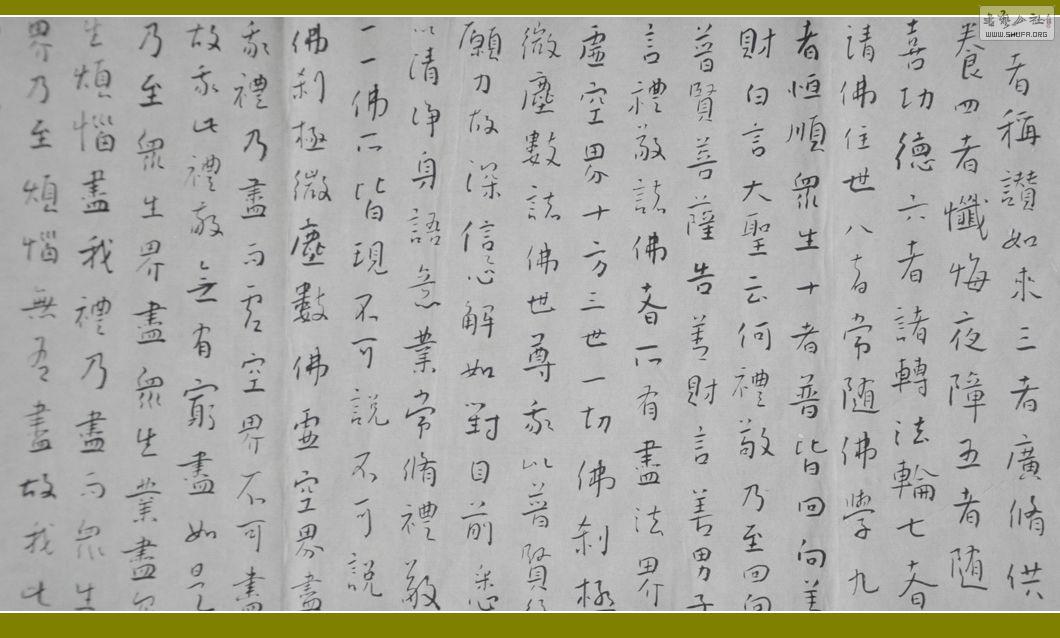 者稱讃如來三者廣脩供
養四者懺悔夜障五者隨
喜功德六者諸轉法輪七者
請佛住世八者常隨佛學九
者恒順眾生十者普皆回向善
財白言大聖云何禮敬乃至回向
普賢菩薩告善財言善男子
言禮敬諸佛者所有盡法界
虛空界十方三世一切佛刹極
微塵數諸佛世尊我以普賢行
願力故深信心解如對目前悉
以清淨身語意業常脩禮敬
一一佛所皆現不可說不可說
佛刹極微塵數佛虛空界盡
我禮乃盡而虛空界不可盡
故我此禮敬無有窮盡如是
乃至眾生界盡眾生業盡眾
生煩惱盡我禮乃盡而眾生
界乃至煩惱無有盡故我此
WWW.SHUFA.ORG